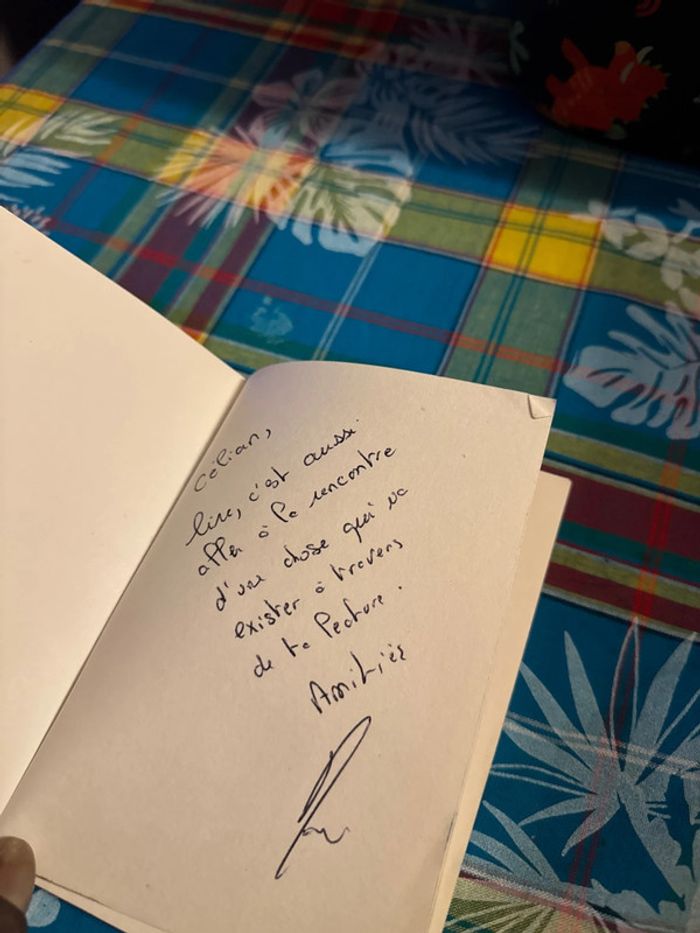 Célian,
lire, c'est aussi
aller à la rencontre
d'une chose qui va
exister à travers
de ta lecture.
Amitiés